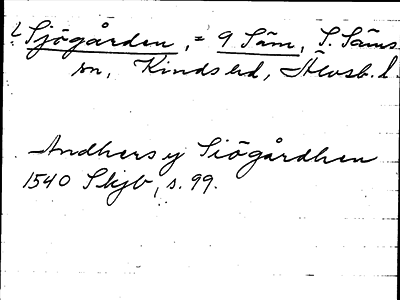 ? Sjögården, = 9 Säm, S. Säms
sn, Kinds hd, Älvsb. l.
Andhers y Siögårdhen
1540 Skjb, s. 99.